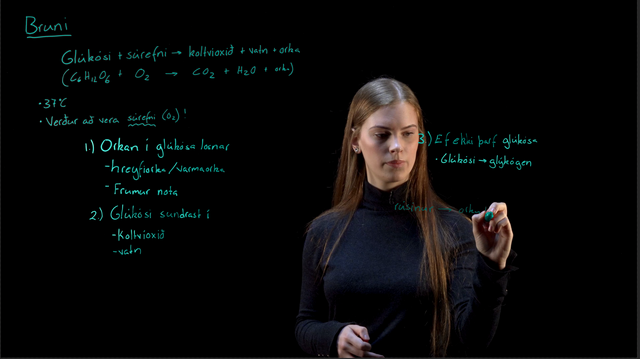 Bruni
Glúkósi + súrefni → koltvíoxíð + vatn + orka
(C6H12O6 + O2 → CO2 + H2O + orka)
• 37°C
• Verður að vera súrefni (O2)!
1.) Orkan í glúkósa losnar
- hreyfiorka/varmaorka
- Frumur nota
2.) Glúkósi sundrast í
- Koltvíoxíð
- vatn
3.) Ef ekki þarf glúkósa
• Glúkósi → glýkógen
→ orka